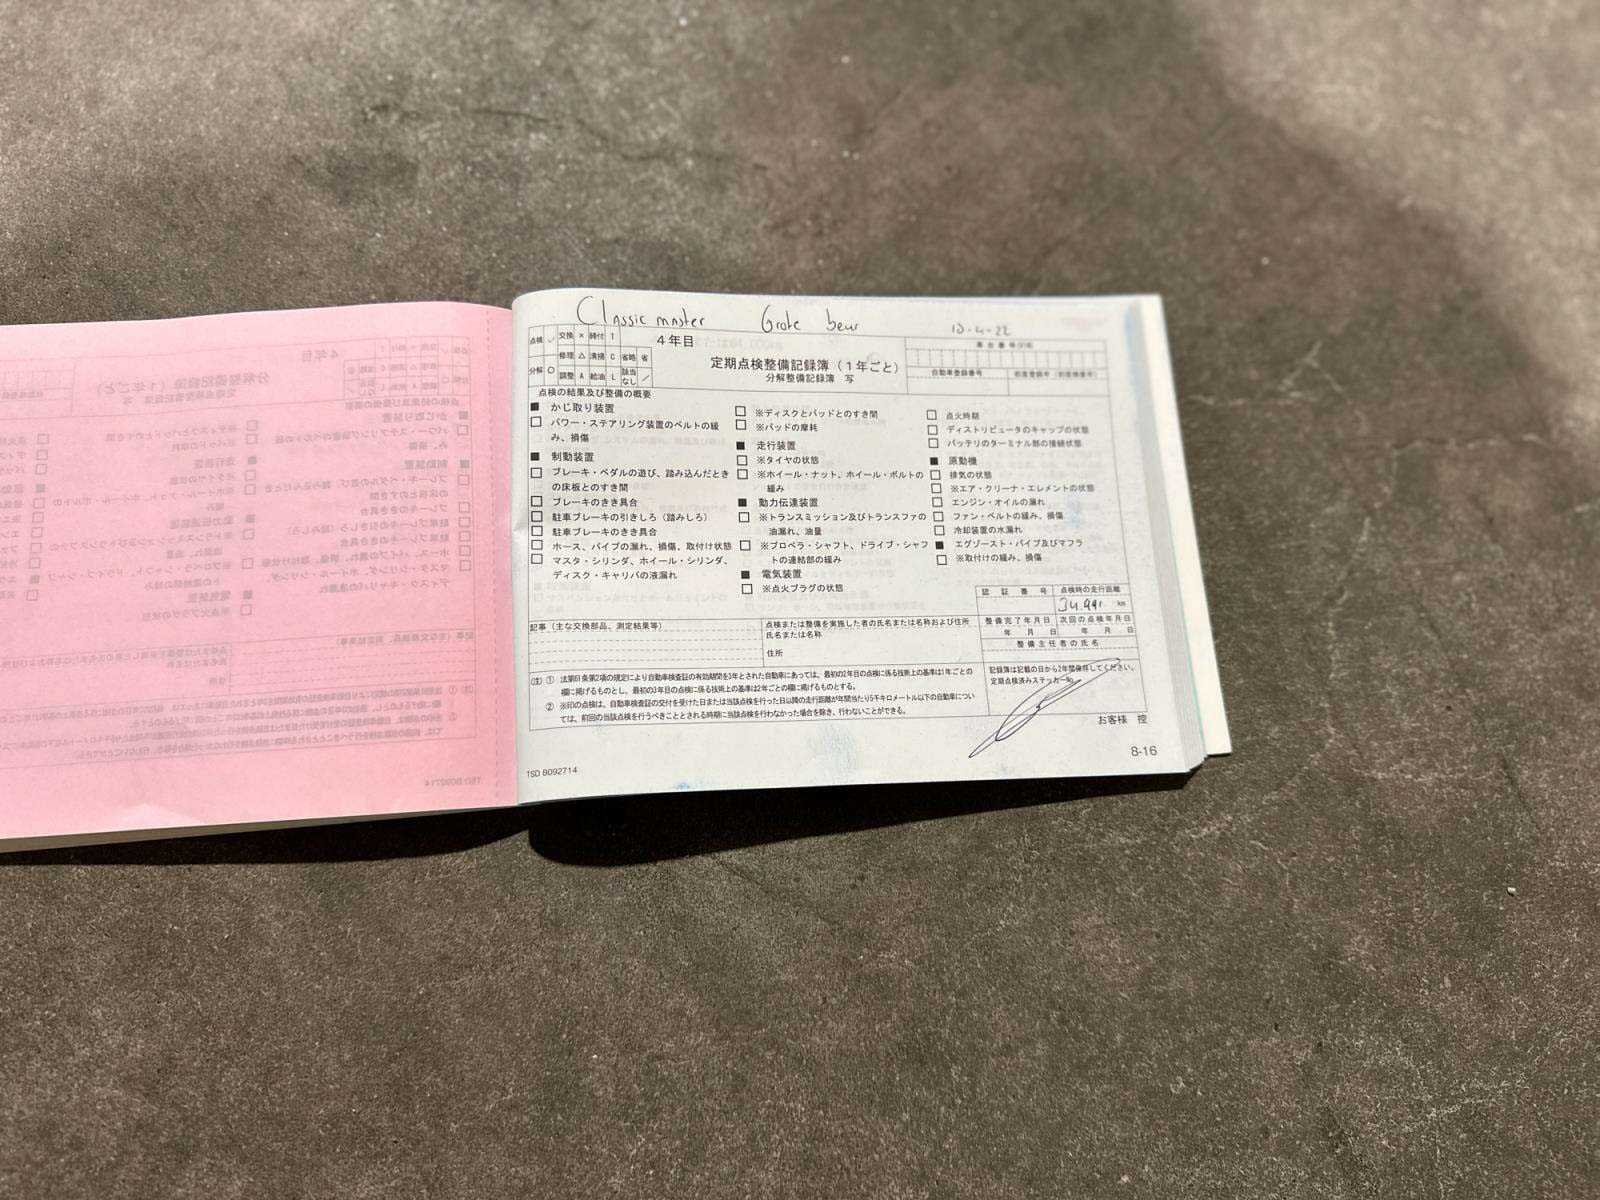 Classic master Grote beur 13-4-22
点検 ✓ 交換 × 締付 T
修理 △ 清掃 C 省略 省
分解 ○ 調整 A 給油 L 該当なし ／
4年目
定期点検整備記録簿（1年ごと）
分解整備記録簿 写
車台番号
自動車登録番号
点検の結果及び整備の概要
■ かじ取り装置
□ パワー・ステアリング装置のベルトの緩
み、損傷
■ 制動装置
□ ブレーキ・ペダルの遊び、踏み込んだとき
の床板とのすき間
□ ブレーキのきき具合
□ 駐車ブレーキの引きしろ（踏みしろ）
□ 駐車ブレーキのきき具合
□ ホース、パイプの漏れ、損傷、取付け状態
□ マスタ・シリンダ、ホイール・シリンダ、
ディスク・キャリパの液漏れ
□ ※ディスクとパッドとのすき間
□ ※パッドの摩耗
■ 走行装置
□ ※タイヤの状態
□ ※ホイール・ナット、ホイール・ボルトの
緩み
■ 動力伝達装置
□ ※トランスミッション及びトランスファの
油漏れ、油量
□ ※プロペラ・シャフト、ドライブ・シャフ
トの連結部の緩み
■ 電気装置
□ ※点火プラグの状態
□ 点火時期
□ ディストリビュータのキャップの状態
□ バッテリのターミナル部の接続状態
■ 原動機
□ 排気の状態
□ ※エア・クリーナ・エレメントの状態
□ エンジン・オイルの漏れ
□ ファン・ベルトの緩み、損傷
□ 冷却装置の水漏れ
■ エグゾースト・パイプ及びマフラ
□ ※取付けの緩み、損傷
認証番号 点検時の走行距離
34.991 km
整備完了年月日 次回の点検年月日
年 月 日 年 月 日
整備主任者の氏名
記事（主な交換部品、測定結果等）
点検または整備を実施した者の氏名または名称および住所
氏名または名称
住所
(注) ① 法第61条第2項の規定により自動車検査証の有効期間を3年とされた自動車にあっては、最初の2年目の点検に係る技術上の基準は1年ごとの
欄に掲げるものとし、最初の3年目の点検に係る技術上の基準は2年ごとの欄に掲げるものとする。
② ※印の点検は、自動車検査証の交付を受けた日または当該点検を行った日以降の走行距離が年間当たり5千キロメートル以下の自動車につい
ては、前回の当該点検を行うべきこととされる時期に当該点検を行わなかった場合を除き、行わないことができる。
記録簿は記載の日から2年間保存してください。
定期点検済みステッカーNo.
お客様 控
TSD B092714
8-16